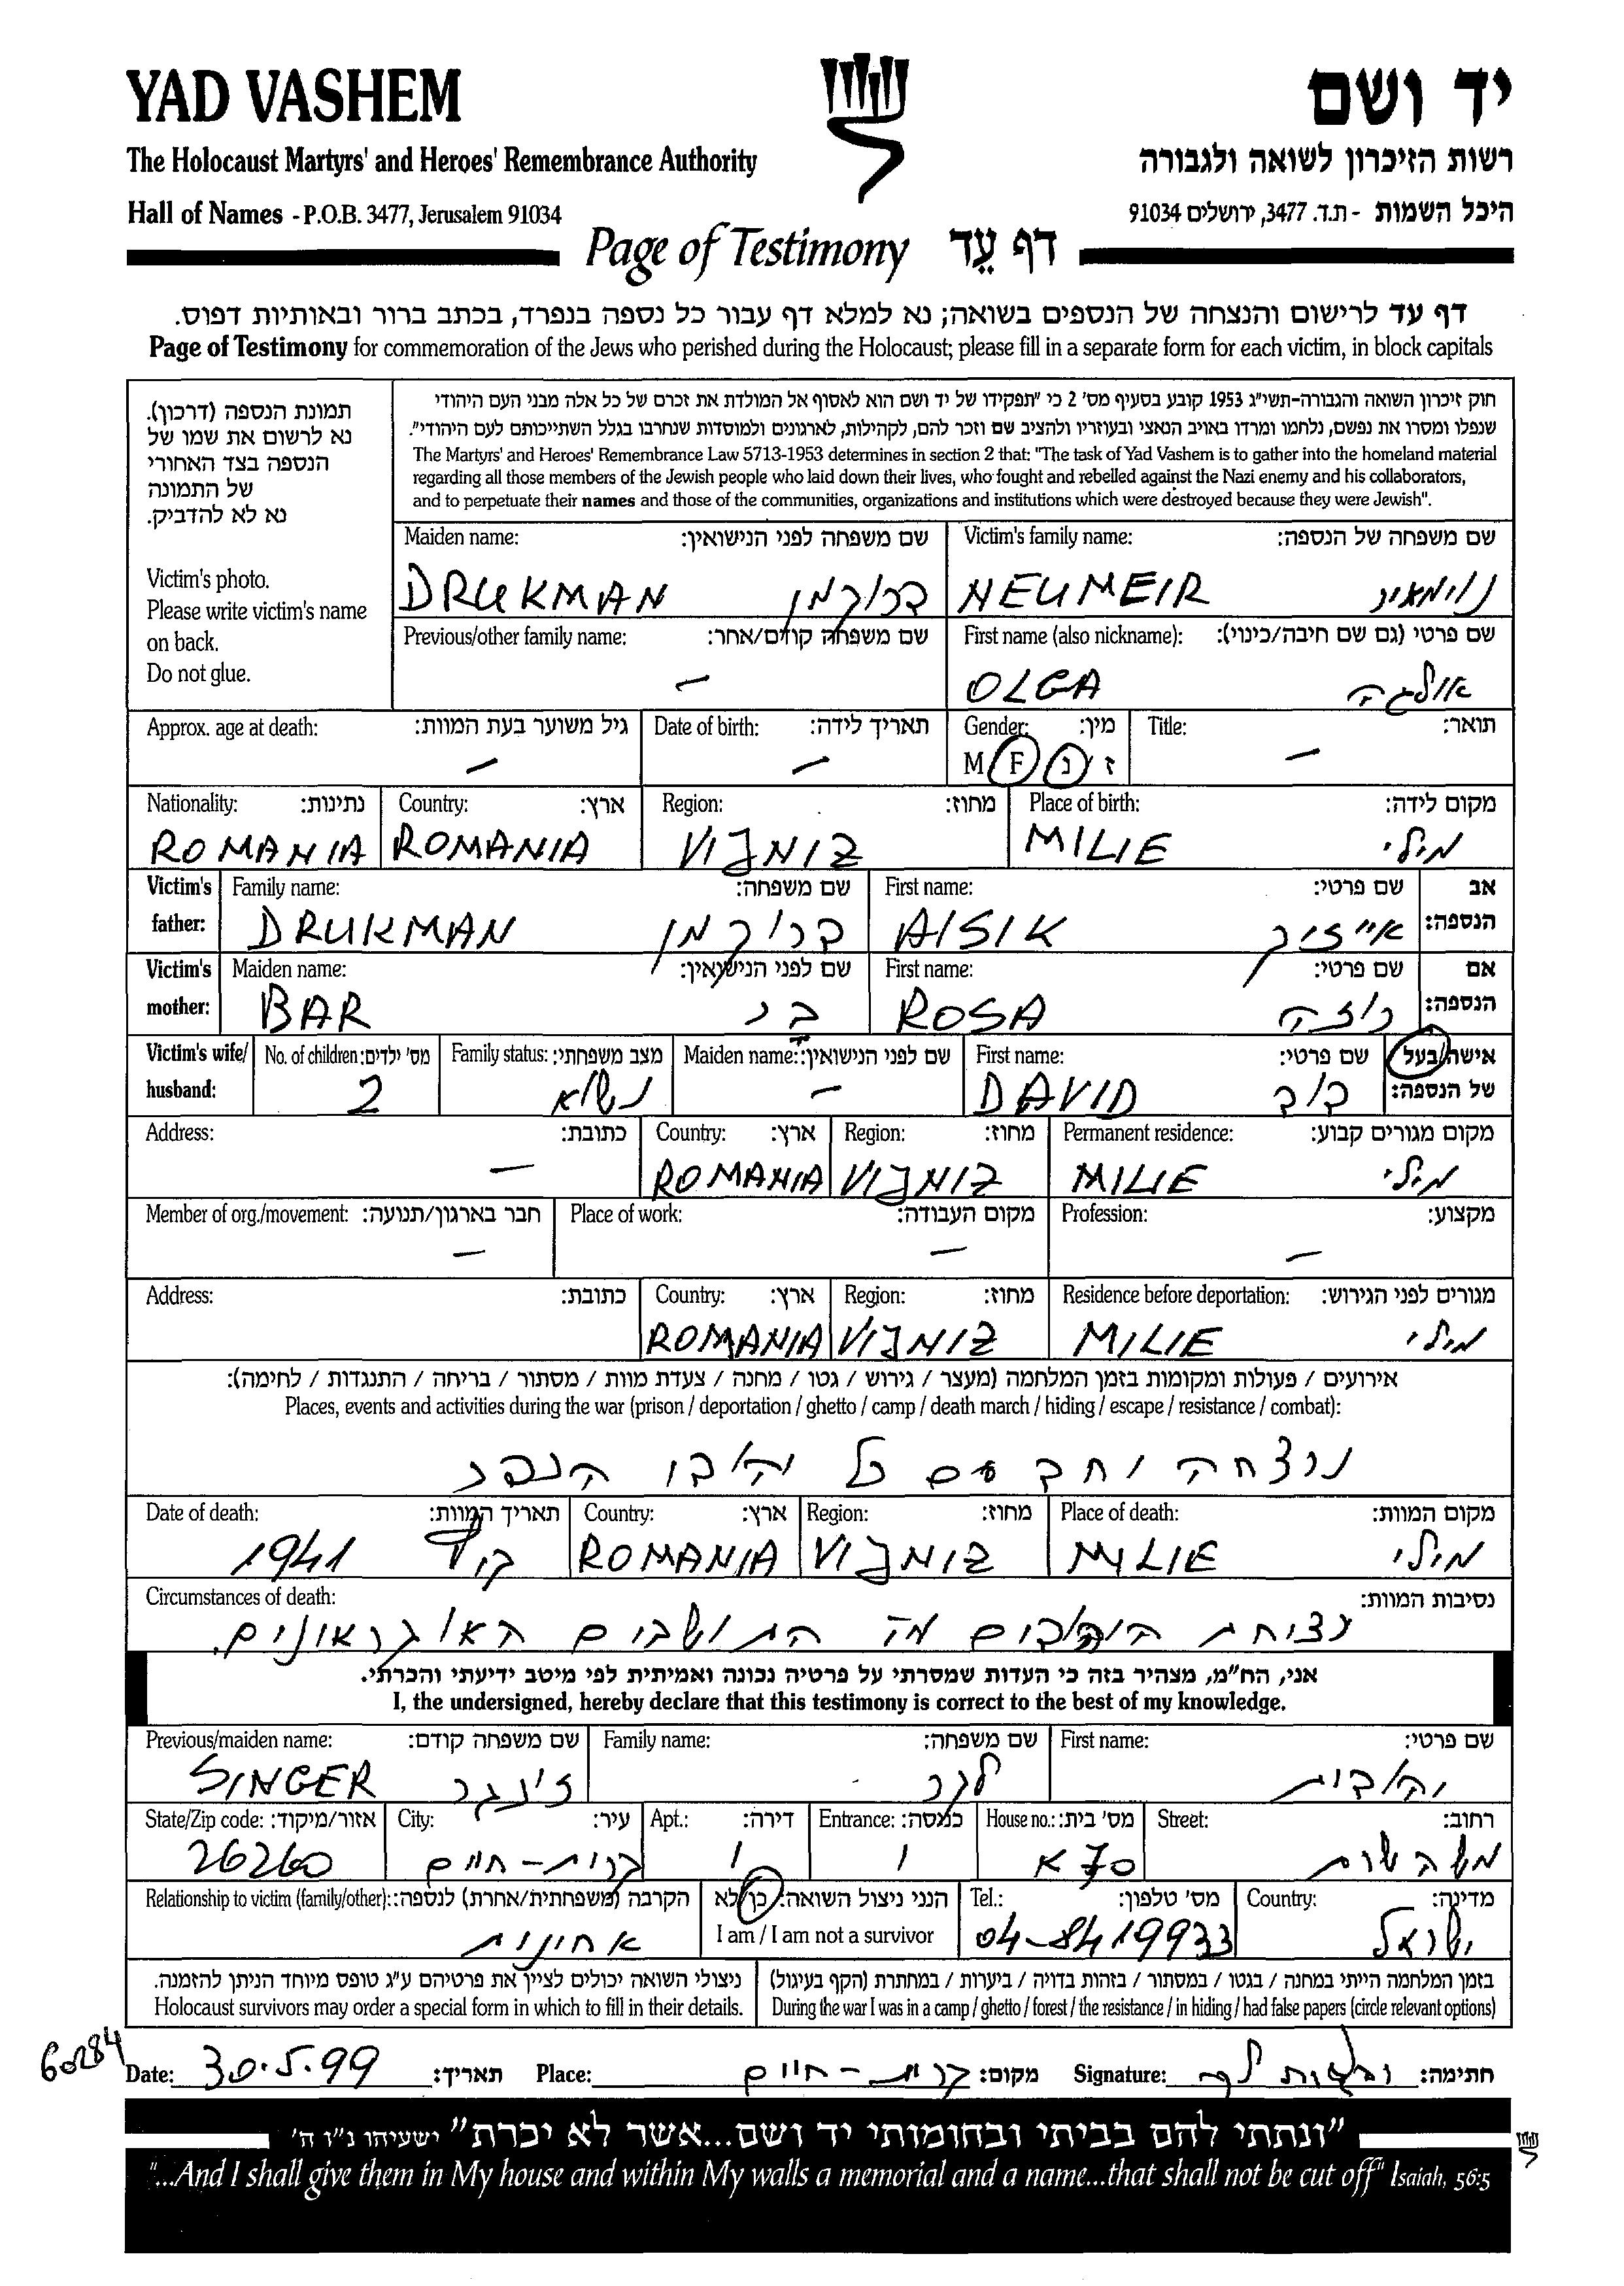 YAD VASHEM
יד ושם
The Holocaust Martyrs' and Heroes' Remembrance Authority
רשות הזיכרון לשואה ולגבורה
Hall of Names - P.O.B. 3477, Jerusalem 91034
היכל השמות - ת.ד. 3477, ירושלים 91034
Page of Testimony דף עֵד
דף עד לרישום והנצחה של הנספים בשואה; נא למלא דף עבור כל נספה בנפרד, בכתב ברור ובאותיות דפוס.
Page of Testimony for commemoration of the Jews who perished during the Holocaust; please fill in a separate form for each victim, in block capitals
תמונת הנספה (דרכון).
נא לרשום את שמו של
הנספה בצד האחורי
של התמונה
נא לא להדביק.
Victim's photo.
Please write victim's name
on back.
Do not glue.
חוק זיכרון השואה והגבורה-תשי"ג 1953 קובע בסעיף מס' 2 כי "תפקידו של יד ושם הוא לאסוף אל המולדת את זכרם של כל אלה מבני העם היהודי
שנפלו ומסרו את נפשם, נלחמו ומרדו באויב הנאצי ובעוזריו ולהציב שם וזכר להם, לקהילות, לארגונים ולמוסדות שנחרבו בגלל השתייכותם לעם היהודי".
The Martyrs' and Heroes' Remembrance Law 5713-1953 determines in section 2 that: "The task of Yad Vashem is to gather into the homeland material
regarding all those members of the Jewish people who laid down their lives, who fought and rebelled against the Nazi enemy and his collaborators,
and to perpetuate their names and those of the communities, organizations and institutions which were destroyed because they were Jewish".
Maiden name: שם משפחה לפני הנישואין:
DRUKMAN דרוקמן
Victim's family name: שם משפחה של הנספה:
NEUMEIR נוימאיר
Previous/other family name: שם משפחה קודם/אחר:
–
First name (also nickname): שם פרטי (גם שם חיבה/כינוי):
OLGA אולגה
Approx. age at death: גיל משוער בעת המוות:
–
Date of birth: תאריך לידה:
–
Gender: מין:
M F נ / ז
Title: תואר:
–
Nationality: נתינות:
ROMANIA
Country: ארץ:
ROMANIA
Region: מחוז:
VIJNIZ
Place of birth: מקום לידה:
MILIE מילי
Victim's father: Family name: שם משפחה:
DRUKMAN דרוקמן
First name: שם פרטי: אב הנספה:
AISIK אייזיק
Victim's mother: Maiden name: שם לפני הנישואין:
BAR בר
First name: שם פרטי: אם הנספה:
ROSA רוזה
Victim's wife/ husband: No. of children: מס' ילדים:
2
Family status: מצב משפחתי:
נשוא
Maiden name: שם לפני הנישואין:
–
First name: שם פרטי: אישה/בעל של הנספה:
DAVID דוד
Address: כתובת:
–
Country: ארץ:
ROMANIA
Region: מחוז:
VIJNIZ
Permanent residence: מקום מגורים קבוע:
MILIE מילי
Member of org./movement: חבר בארגון/תנועה:
–
Place of work: מקום העבודה:
–
Profession: מקצוע:
–
Address: כתובת:
Country: ארץ:
ROMANIA
Region: מחוז:
VIJNIZ
Residence before deportation: מגורים לפני הגירוש:
MILIE מילי
אירועים / פעולות ומקומות בזמן המלחמה (מעצר / גירוש / גטו / מחנה / צעדת מוות / מסתור / בריחה / התנגדות / לחימה):
Places, events and activities during the war (prison / deportation / ghetto / camp / death march / hiding / escape / resistance / combat):
נרצחה יחד עם כל יהודי הכפר
Date of death: תאריך המוות:
קיץ 1941
Country: ארץ:
ROMANIA
Region: מחוז:
VIJNIZ
Place of death: מקום המוות:
MILIE מילי
Circumstances of death: נסיבות המוות:
רציחת היהודים התושבים האוקראינים.
אני, הח"מ, מצהיר בזה כי העדות שמסרתי על פרטיה נכונה ואמיתית לפי מיטב ידיעתי והכרתי.
I, the undersigned, hereby declare that this testimony is correct to the best of my knowledge.
Previous/maiden name: שם משפחה קודם:
SINGER זינגר
Family name: שם משפחה:
First name: שם פרטי:
יהודית
State/Zip code: אזור/מיקוד:
26260
City: עיר:
קרית-חיים
Apt.: דירה:
1
Entrance: כניסה:
1
House no.: מס' בית:
70 א
Street: רחוב:
Relationship to victim (family/other): הקרבה (משפחתית/אחרת) לנספה:
אחינית
הנני ניצול השואה: כן/לא
I am / I am not a survivor
Tel.: מס' טלפון:
04-8419933
Country: מדינה:
ישראל
ניצולי השואה יכולים לציין את פרטיהם ע"ג טופס מיוחד הניתן להזמנה.
Holocaust survivors may order a special form in which to fill in their details.
בזמן המלחמה הייתי במחנה / בגטו / במסתור / בזהות בדויה / ביערות / במחתרת (הקף בעיגול)
During the war I was in a camp / ghetto / forest / the resistance / in hiding / had false papers (circle relevant options)
60284
Date: 30.5.99 תאריך: Place: קרית-חיים מקום: Signature: יהודית חתימה:
"ונתתי להם בביתי ובחומותי יד ושם...אשר לא יכרת" ישעיהו נ"ו ה'
"...And I shall give them in My house and within My walls a memorial and a name...that shall not be cut off" Isaiah, 56:5